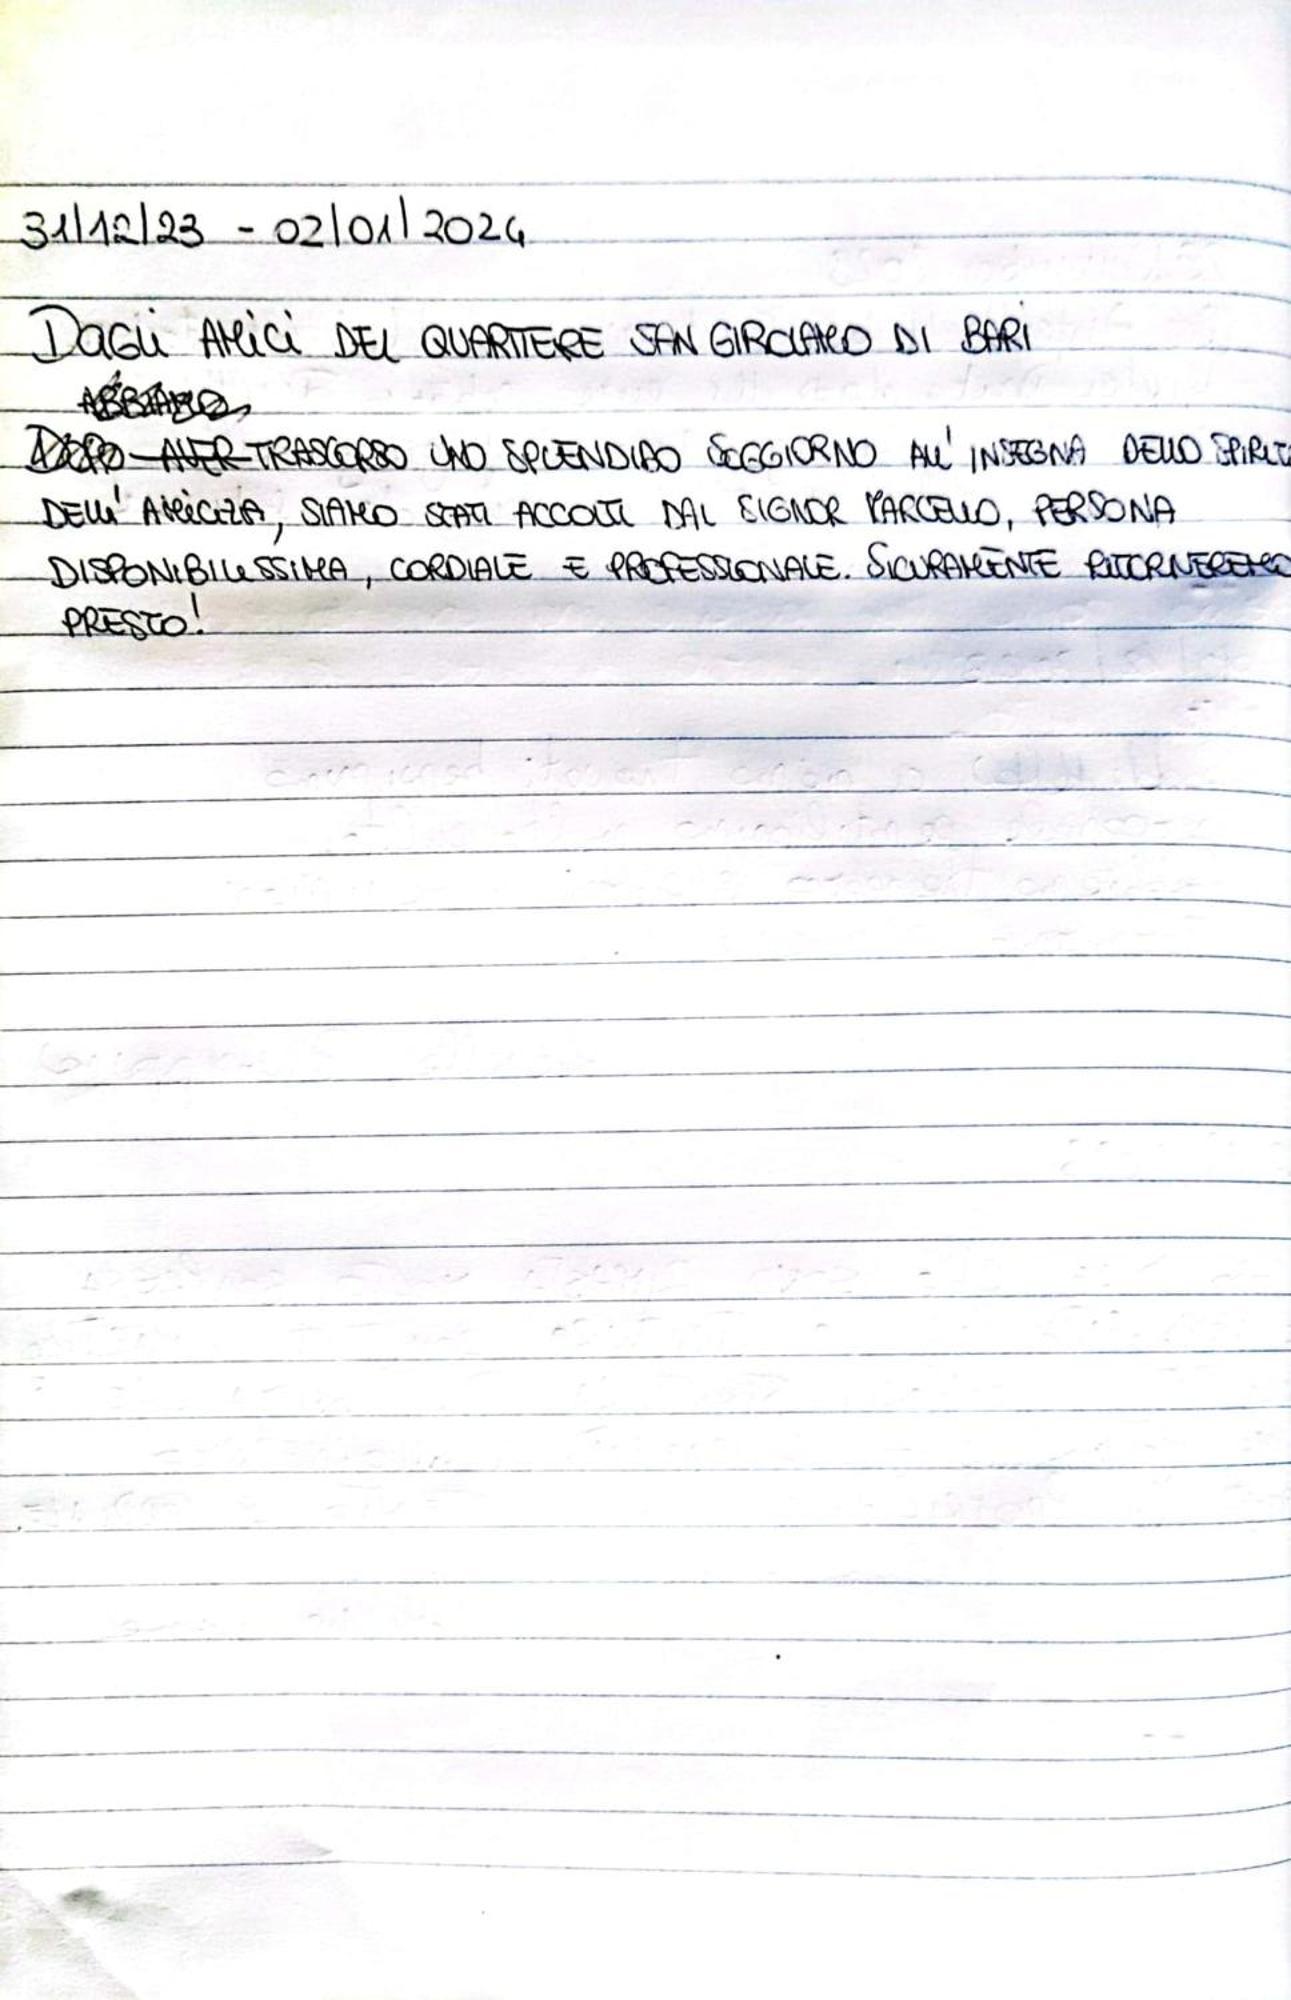 31/12/23 - 02/01/2024
DAGLI AMICI DEL QUARTIERE SAN GIROLAMO DI BARI
ABBIAMO
DOPO AVER TRASCORSO UNO SPLENDIDO SOGGIORNO ALL'INSEGNA DELLO SPIRITO
DELL'AMICIZIA, SIAMO STATI ACCOLTI DAL SIGNOR MARCELLO, PERSONA
DISPONIBILISSIMA, CORDIALE E PROFESSIONALE. SICURAMENTE RITORNEREMO
PRESTO!